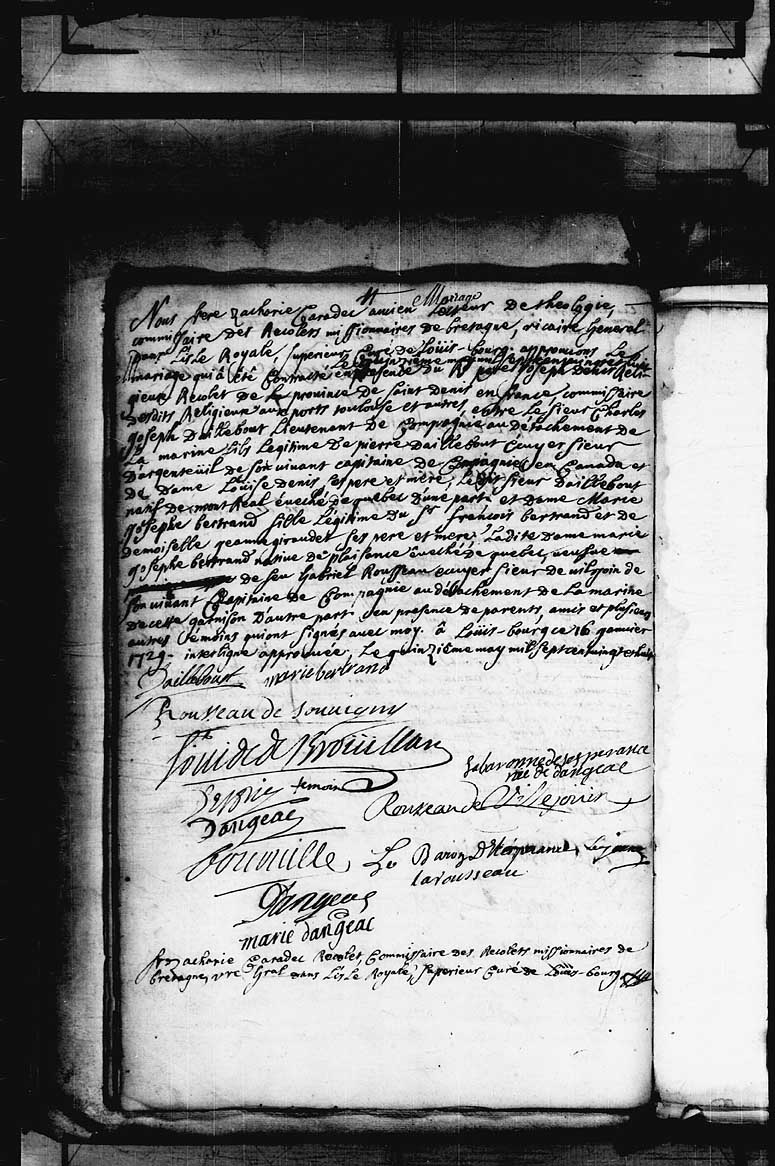 Mariage
Nous frere Zacharie Caradec ancien Lecteur de theologie,
commissaire des Recolets missionnaires de bretagne, vicaire General
Dans L'isle Royale, superieur Curé de Loüis-bourg approuvons Le
Le quinzième may mil sept cent vingt et huit
mariage qui a été Contracté en presence du R. pere Joseph Denis Reli-
gieux Recolet de la province de saint Denis en france, commissaire
desdits Religieux aux ports toulouse et autres, entre Le sieur Charles
Joseph Daillebout Lieutenant de Compagnie au détachement de
La marine fils Legitime de pierre Daillebout Ecuyer sieur
D'argenteüil de son vivant capitaine de Compagnie en Canada et
de Dame Loüise denis, ses pere et mere, Ledit sieur Daillebout
natif de mont Real évêché de quebec d'une part et dame Marie
Josephe bertrand fille Légitime du Sr françois bertrand et de
demoiselle jeanne giraudet ses pere et mere, Ladite dame marie
Josephe bertrand native de plaisance évêché de quebec, veufue
de feu Gabriel Rousseau ecuyer sieur de vilejoin de
son vivant Capitaine de Compagnie au détachement de La marine
de cette garnison D'autre part, en presence de parents, amis et plusieurs
autres temoins qui ont signés avec moy. à Loüis-bourg ce 16 janvier
1729. interligne approuvée, Le quinzième may mil sept cent vingt et huit
Daillebout marie bertrand
Rousseau de souvigny
de Broüillan
La baronne de lesperance
née de dangeac
temoin
Rousseau de Villejoüin
Dangeac
Le Baron de Lesperance, Le jeune
la rousseau
Dangeac
marie dangeac
fr. Zacharie Caradec Recolet, Commissaire des Recolets missionnaires de
bretagne, vre gral dans L'isle Royale, superieur Curé de Loüis-bourg